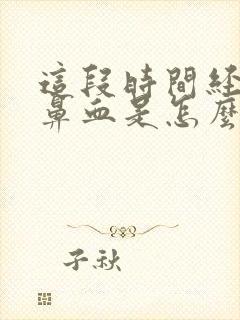 這段時間経
鼻血是怎麼
子秋